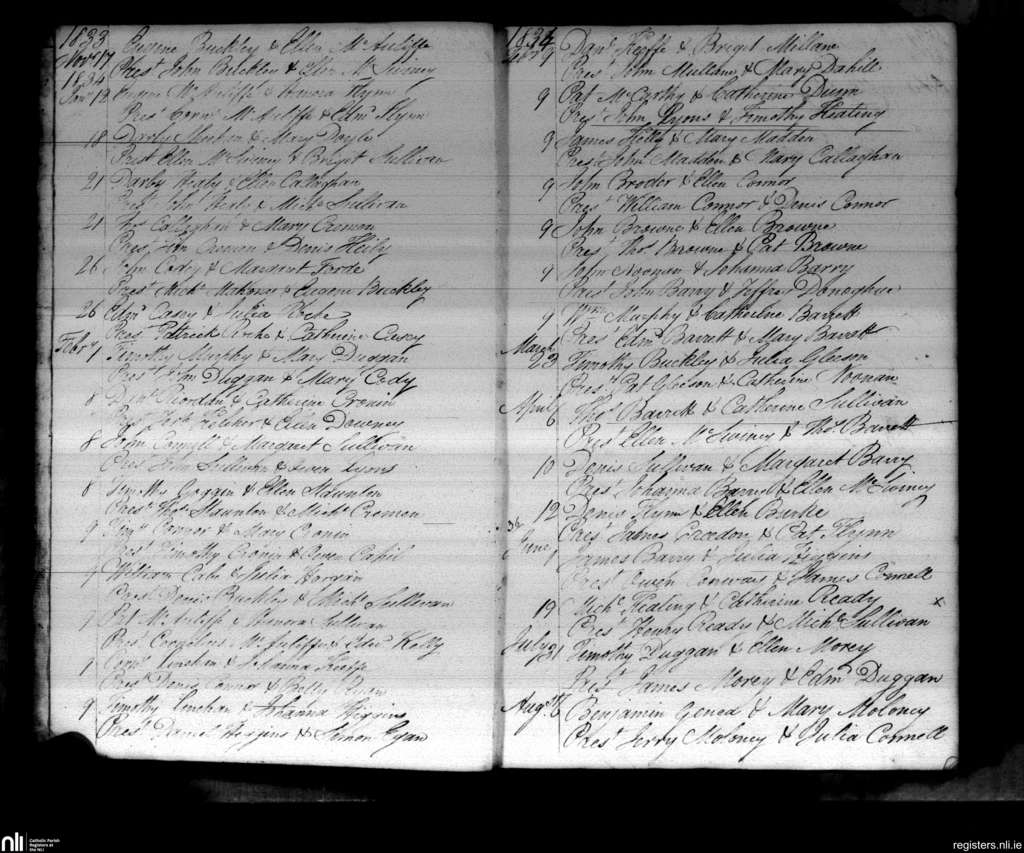 1833
Novr 17 Eugene Buckley & Ellen McAuliffe
Prest John Buckley & Ellen McSwiney
1834
Jany 12 McAuliffe & Honora Flynn
Prest McAuliffe & Edmd Flynn
18 Darby & Mary Doyle
Prest Ellen McSwiney & Bridget Sullivan
21 Darby Healy & Ellen Callaghan
Prest John & Michl Sullivan
21 Callaghan & Mary Cremon
Prest Cremon & Denis Heily
26 John Cody & Margaret Forde
Prest Michl Mahoney & Eugene Buckley
26 Edmd Casey & Julia Roche
Prest Patrick Roche & Catherine Casey
Febry 1 Timothy Murphy & Mary Duggan
Prest John Duggan & Mary Cody
8 Danl Riordan & Catherine Cronin
Prest & Ellen Downey
8 John Carroll & Margaret Sullivan
Prest John Sullivan & Lyons
8 Timothy Goggin & Ellen Staunton
Prest Thos Staunton & Michl Cremon
9 Connor & Mary Cronin
Prest Timothy Cronin & Owen Cashil
9 William & Julia Horgan
Prest Denis Buckley & Michl Sullivan
9 Pat McAuliffe & Honora Sullivan
Prest Cornelius McAuliffe & Kelly
9 Linehan & Johanna Keeffe
Prest Denis Connor & Betty Ryan
9 Timothy Linehan & Johanna Higgins
Prest Daniel Higgins & Simon Ryan
1834
9 Danl Keeffe & Briget Millane
Prest John Mullane & Mary Dahill
9 Pat McCarthy & Catherine Dunn
Prest John Lyons & Timothy Keating
9 James Kelly & Mary Madden
Prest John Madden & Mary Callaghan
9 John Broder & Ellen Connor
Prest William Connor & Denis Connor
9 John Browne & Ellen Browne
Prest Thos Browne & Pat Browne
9 John Noonan & Johanna Barry
Prest John Barry & Jeffrey Donoghue
9 Wm Murphy & Catherine Barrett
Prest Edmd Barrett & Mary Barrett
March 23 Timothy Buckley & Julia Gleeson
Prest Pat Gleeson & Catherine Noonan
April 6 Thos Barrett & Catherine Sullivan
Prest Ellen McSwiney & Thos Barrett
10 Denis Sullivan & Margaret Barry
Prest Johanna Barry & Ellen McSwiney
12 Denis Flynn & Ellen Burke
Prest James Creedon & Pat Flynn
June 1 James Barry & Julia Higgins
Prest Owen & James Connell
19 Michl Healing & Catherine Ready x
Prest Henry Ready & Michl Sullivan
July 31 Timothy Duggan & Ellen Morey
Prest James Morey & Edmd Duggan
Augst 6 Benjamin Genea & Mary Moloney
Prest Jerry Moloney & Julia Connell
nli
Catholic Parish
Registers at
the NLI
registers.nli.ie